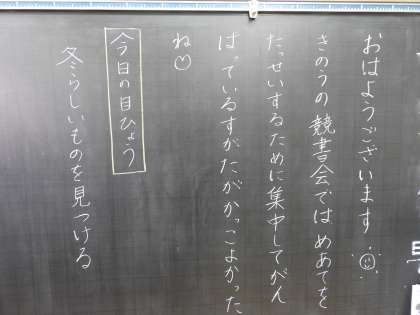 おはようございます
きのうの競書会ではめあてを
たっせいするために集中してがん
ばっているすがたがかっこよかった
ね♡
今日の目ひょう
冬らしいものを見つける